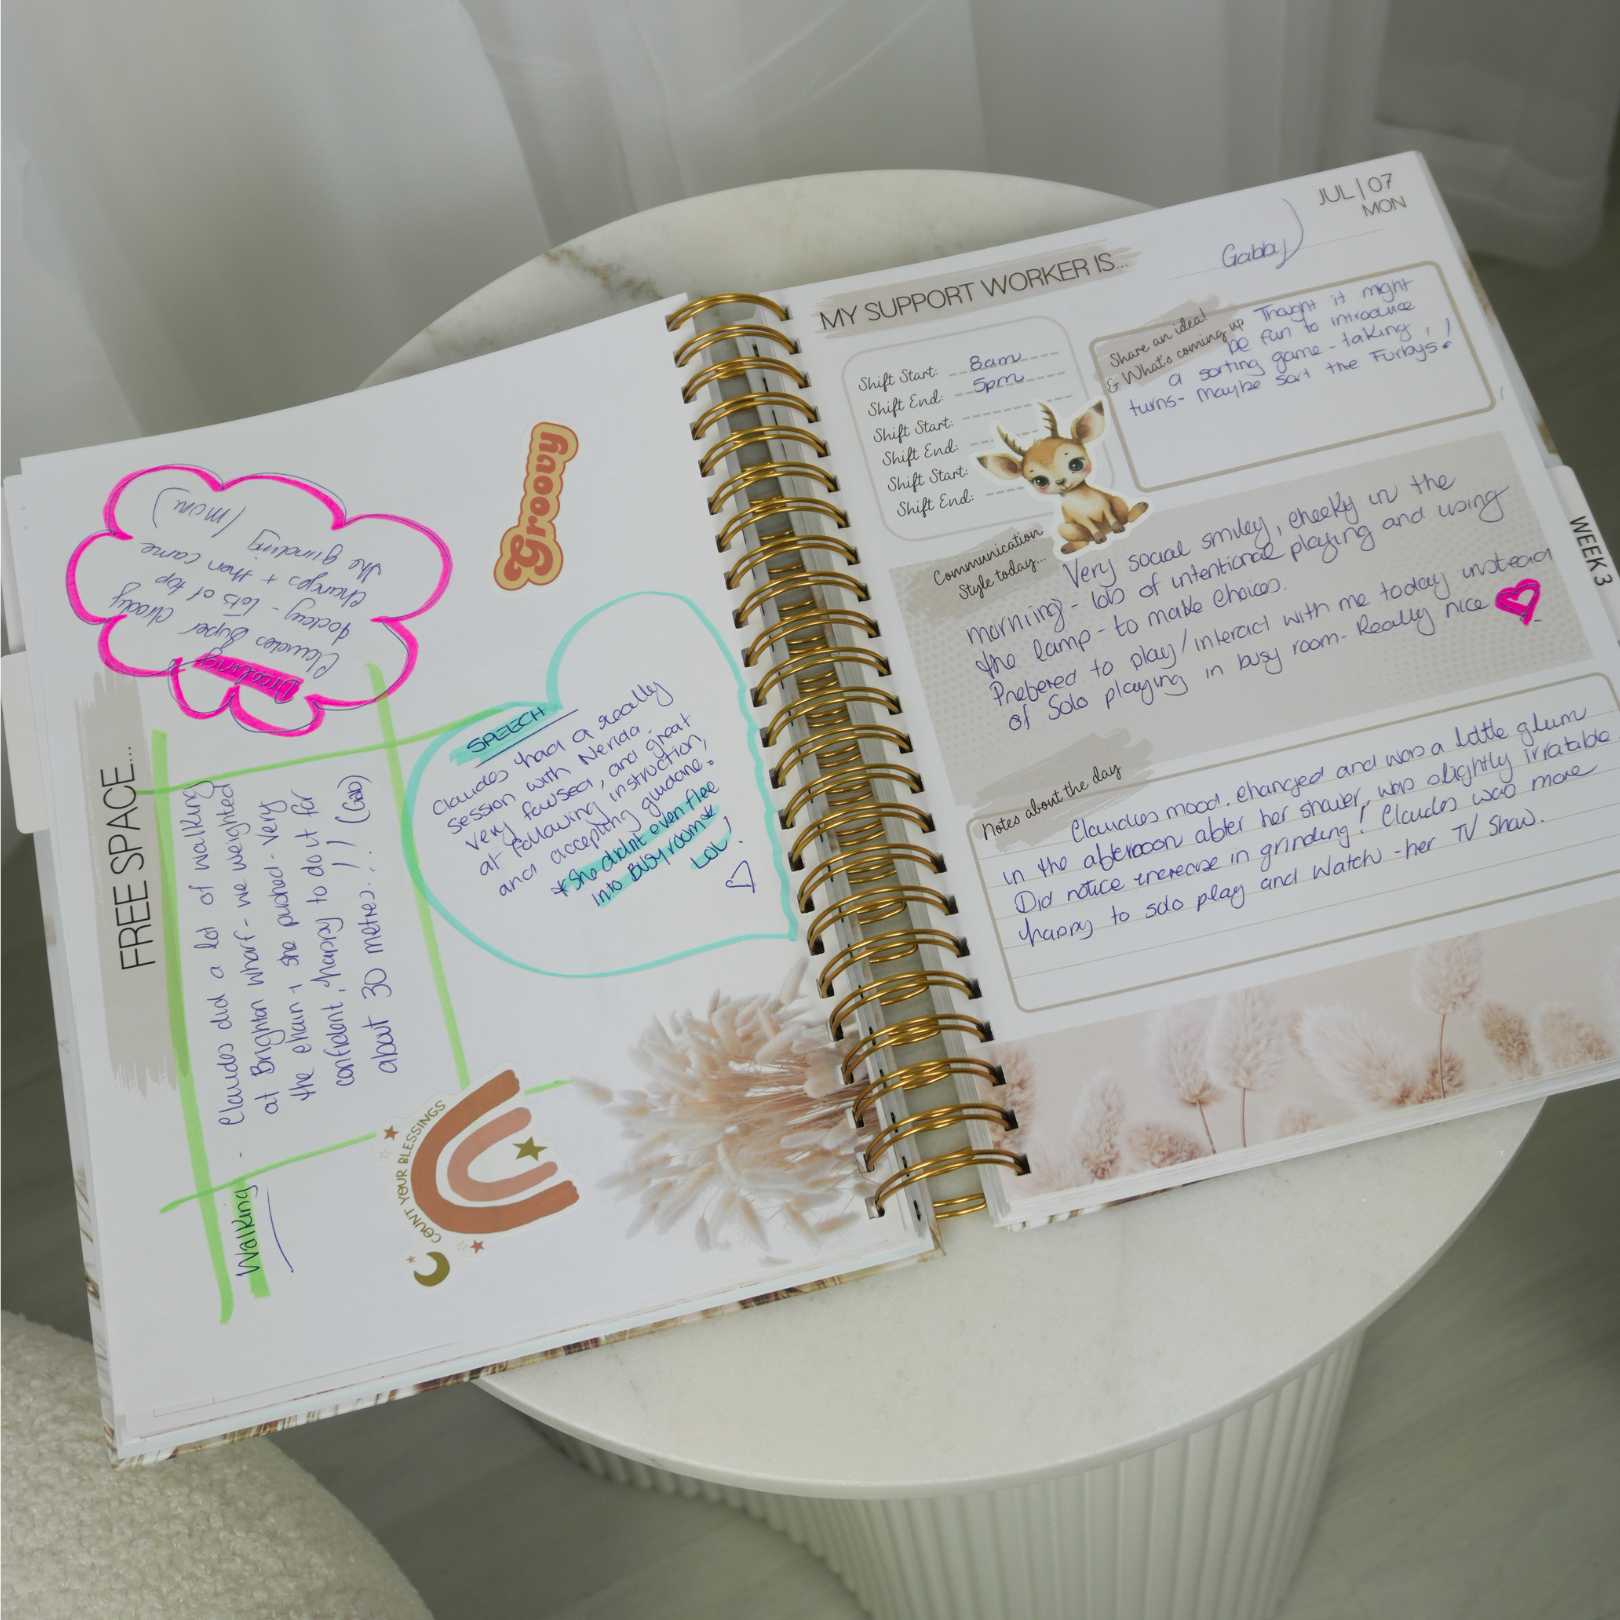 Drooling
Claudes super drooly
today - lots of top
changes + then came
the grinding (mon)
Groovy
FREE SPACE...
SPEECH
Claudes had a really
session with Nerida -
very focused, and great
at following instruction,
and accepting guidance.
*She didn't even flee
into Busy room*
LOL!
Walking - Claudes did a lot of walking
at Brighton wharf - we weighted
the chair + she pushed - very
confident, happy to do it for
about 30 metres..!! (GAB)
COUNT YOUR BLESSINGS
JUL | 07
MON
MY SUPPORT WORKER IS...
Gabby
Shift Start: 8am
Shift End: 5pm
Shift Start:
Shift End:
Shift Start:
Shift End:
Share an idea!
& What's coming up
Thought it might
be fun to introduce
a sorting game - taking
turns - maybe sort the Furbys!
Communication
Style today...
Very social smiley, cheeky in the
morning - lots of intentional playing and using
the lamp - to make choices.
Prefered to play/interact with me today instead
of solo playing in busy room - Really nice
WEEK 3
Notes about the day
Claudes mood changed and was a little glum
in the afternoon after her shower, was slightly irratable
Did notice increase in grinding! Claudes was more
happy to solo play and watch - her TV show.